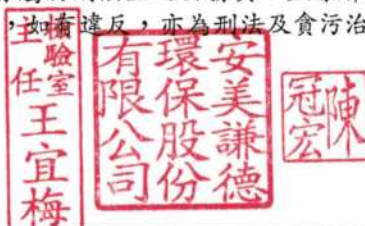 ，如有違反，亦為刑法及貪污治
檢驗室
主任
王宜梅
安美謙德
環保股份
有限公司
陳
冠宏